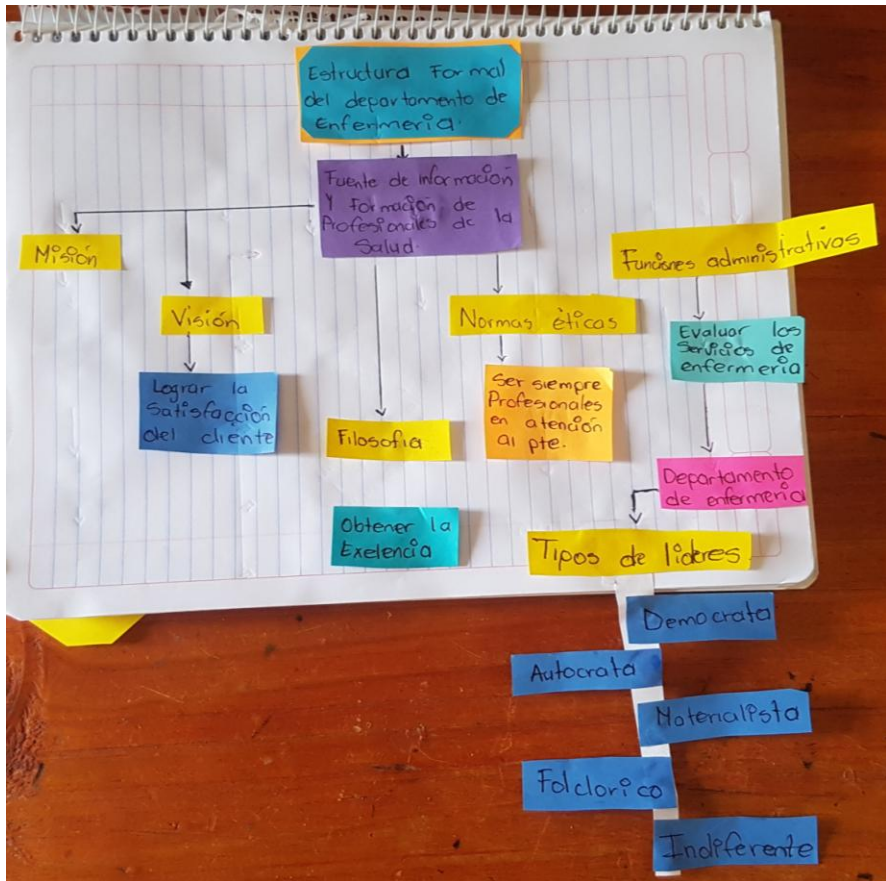 Estructura Formal
del departamento de
Enfermeria.
Fuente de información
Y Formación de
Profesionales de la
Salud.
Misión
Visión
Lograr la
Satisfacción
del cliente
Filosofia
Obtener la
Exelencia
Normas èticas
Ser siempre
Profesionales
en atención
al pte.
Funciones administrativos
Evaluar los
Servicios de
enfermeria
Departamento
de enfermeria
Tipos de lideres
Democrata
Autocrata
Materialista
Folclorico
Indiferente